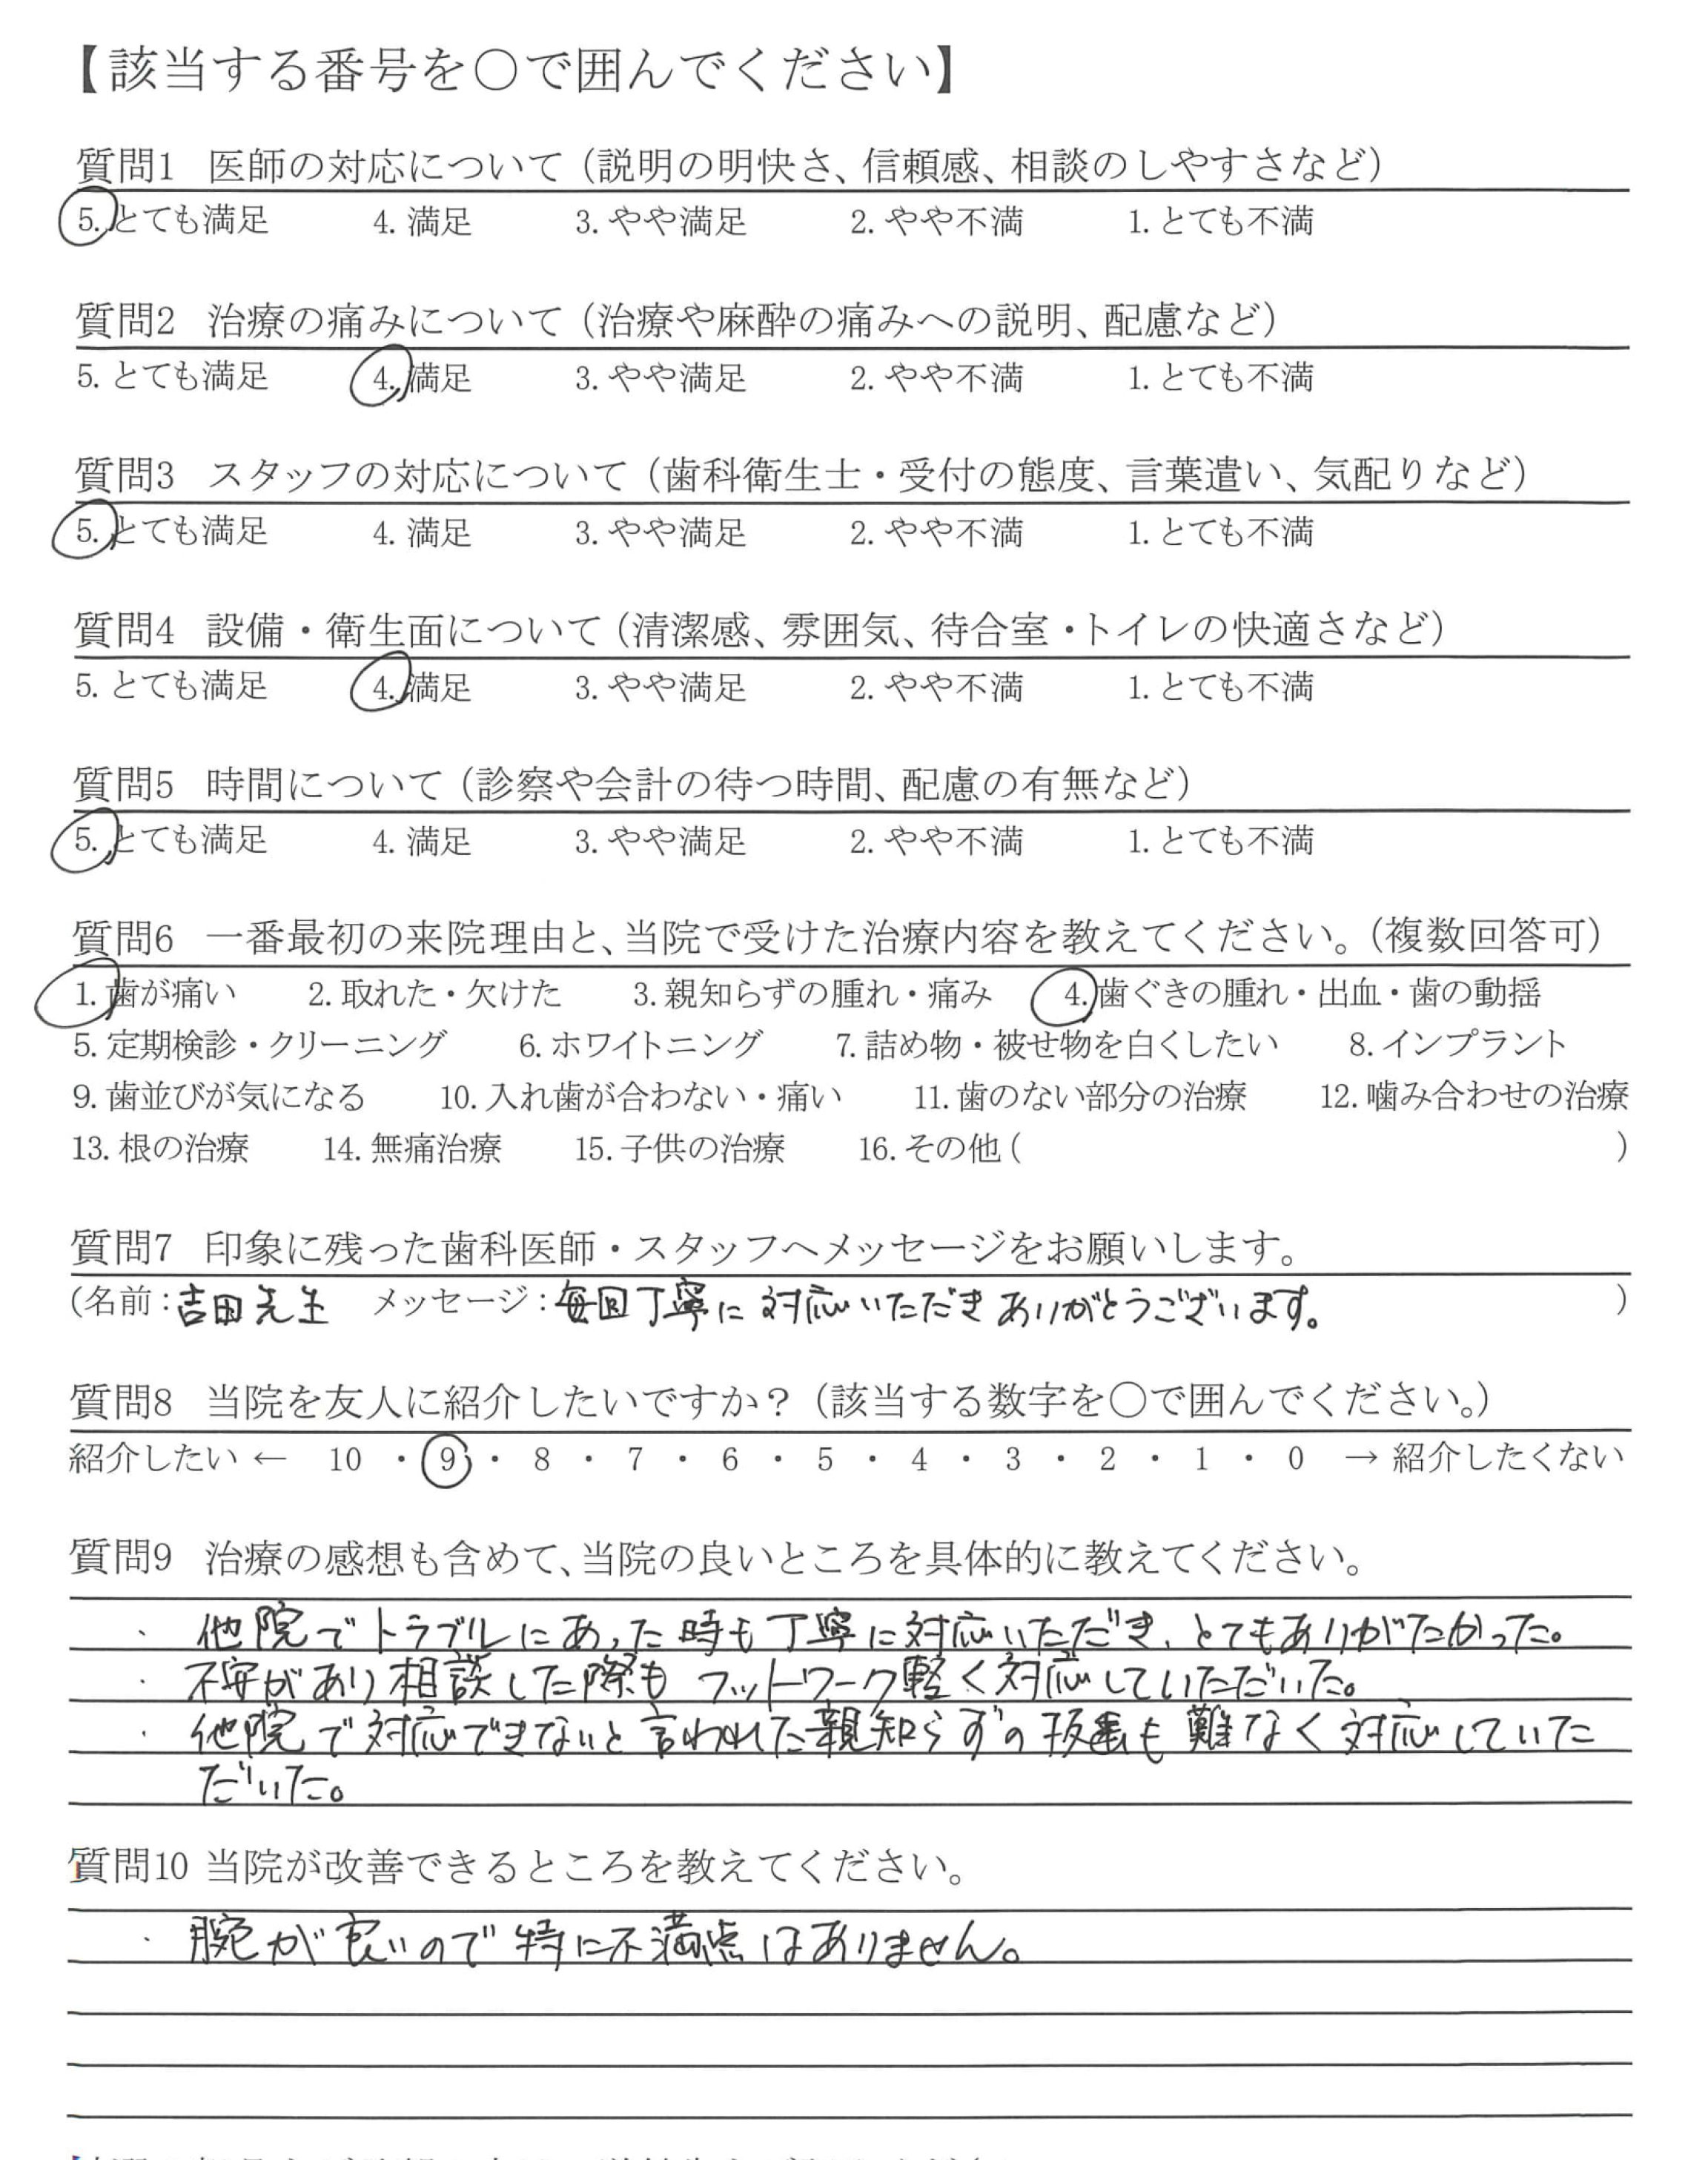 【該当する番号を○で囲んでください】
質問1 医師の対応について（説明の明快さ、信頼感、相談のしやすさなど）
5. とても満足 4. 満足 3. やや満足 2. やや不満 1. とても不満
質問2 治療の痛みについて（治療や麻酔の痛みへの説明、配慮など）
5. とても満足 4. 満足 3. やや満足 2. やや不満 1. とても不満
質問3 スタッフの対応について（歯科衛生士・受付の態度、言葉遣い、気配りなど）
5. とても満足 4. 満足 3. やや満足 2. やや不満 1. とても不満
質問4 設備・衛生面について（清潔感、雰囲気、待合室・トイレの快適さなど）
5. とても満足 4. 満足 3. やや満足 2. やや不満 1. とても不満
質問5 時間について（診察や会計の待つ時間、配慮の有無など）
5. とても満足 4. 満足 3. やや満足 2. やや不満 1. とても不満
質問6 一番最初の来院理由と、当院で受けた治療内容を教えてください。（複数回答可）
1. 歯が痛い 2. 取れた・欠けた 3. 親知らずの腫れ・痛み 4. 歯ぐきの腫れ・出血・歯の動揺
5. 定期検診・クリーニング 6. ホワイトニング 7. 詰め物・被せ物を白くしたい 8. インプラント
9. 歯並びが気になる 10. 入れ歯が合わない・痛い 11. 歯のない部分の治療 12. 噛み合わせの治療
13. 根の治療 14. 無痛治療 15. 子供の治療 16. その他（ ）
質問7 印象に残った歯科医師・スタッフへメッセージをお願いします。
（名前：吉田先生 メッセージ：毎回丁寧に対応いただきありがとうございます。 ）
質問8 当院を友人に紹介したいですか？（該当する数字を○で囲んでください。）
紹介したい ← 10 ・ 9 ・ 8 ・ 7 ・ 6 ・ 5 ・ 4 ・ 3 ・ 2 ・ 1 ・ 0 → 紹介したくない
質問9 治療の感想も含めて、当院の良いところを具体的に教えてください。
・ 他院でトラブルにあった時も丁寧に対応いただき、とてもありがたかった。
・ 不安があり相談した際もフットワーク軽く対応していただいた。
・ 他院で対応できないと言われた親知らずの抜歯も難なく対応していた
だいた。
質問10 当院が改善できるところを教えてください。
・ 腕が良いので特に不満点はありません。